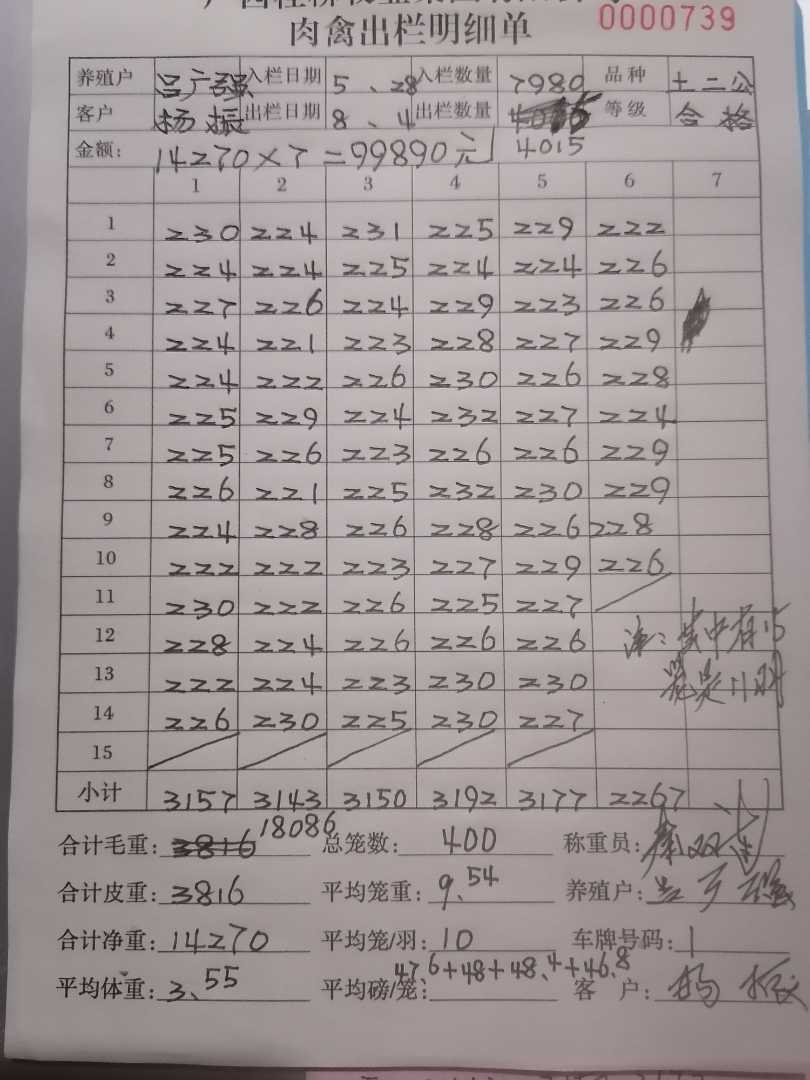 肉禽出栏明细单 0000739
养殖户 吕广强 入栏日期 5、28 入栏数量 7980 品种 土二公
客户 杨振 出栏日期 8、4 出栏数量 等级 合格
金额: 14270×7=99890元 4015
1 2 3 4 5 6 7
1 230 224 231 225 229 222
2 224 224 225 224 224 226
3 227 226 224 229 223 226
4 224 221 223 228 227 229
5 224 222 226 230 226 228
6 225 229 224 232 227 224
7 225 226 223 226 226 229
8 226 221 225 232 230 229
9 224 228 226 228 226 228
10 222 222 223 227 229 226
11 230 222 226 225 227
12 228 224 226 226 226 注:其中有15
13 222 224 223 230 230 笼是11羽
14 226 230 225 230 227
15
小计 3157 3143 3150 3192 3177 2267
合计毛重: 3816 18086 总笼数: 400 称重员:
合计皮重: 3816 平均笼重: 9.54 养殖户: 吕广强
合计净重: 14270 平均笼/羽: 10 车牌号码: 1
平均体重: 3.55 平均磅/笼: 47.6+48+48.4+46.8 客户: 杨振